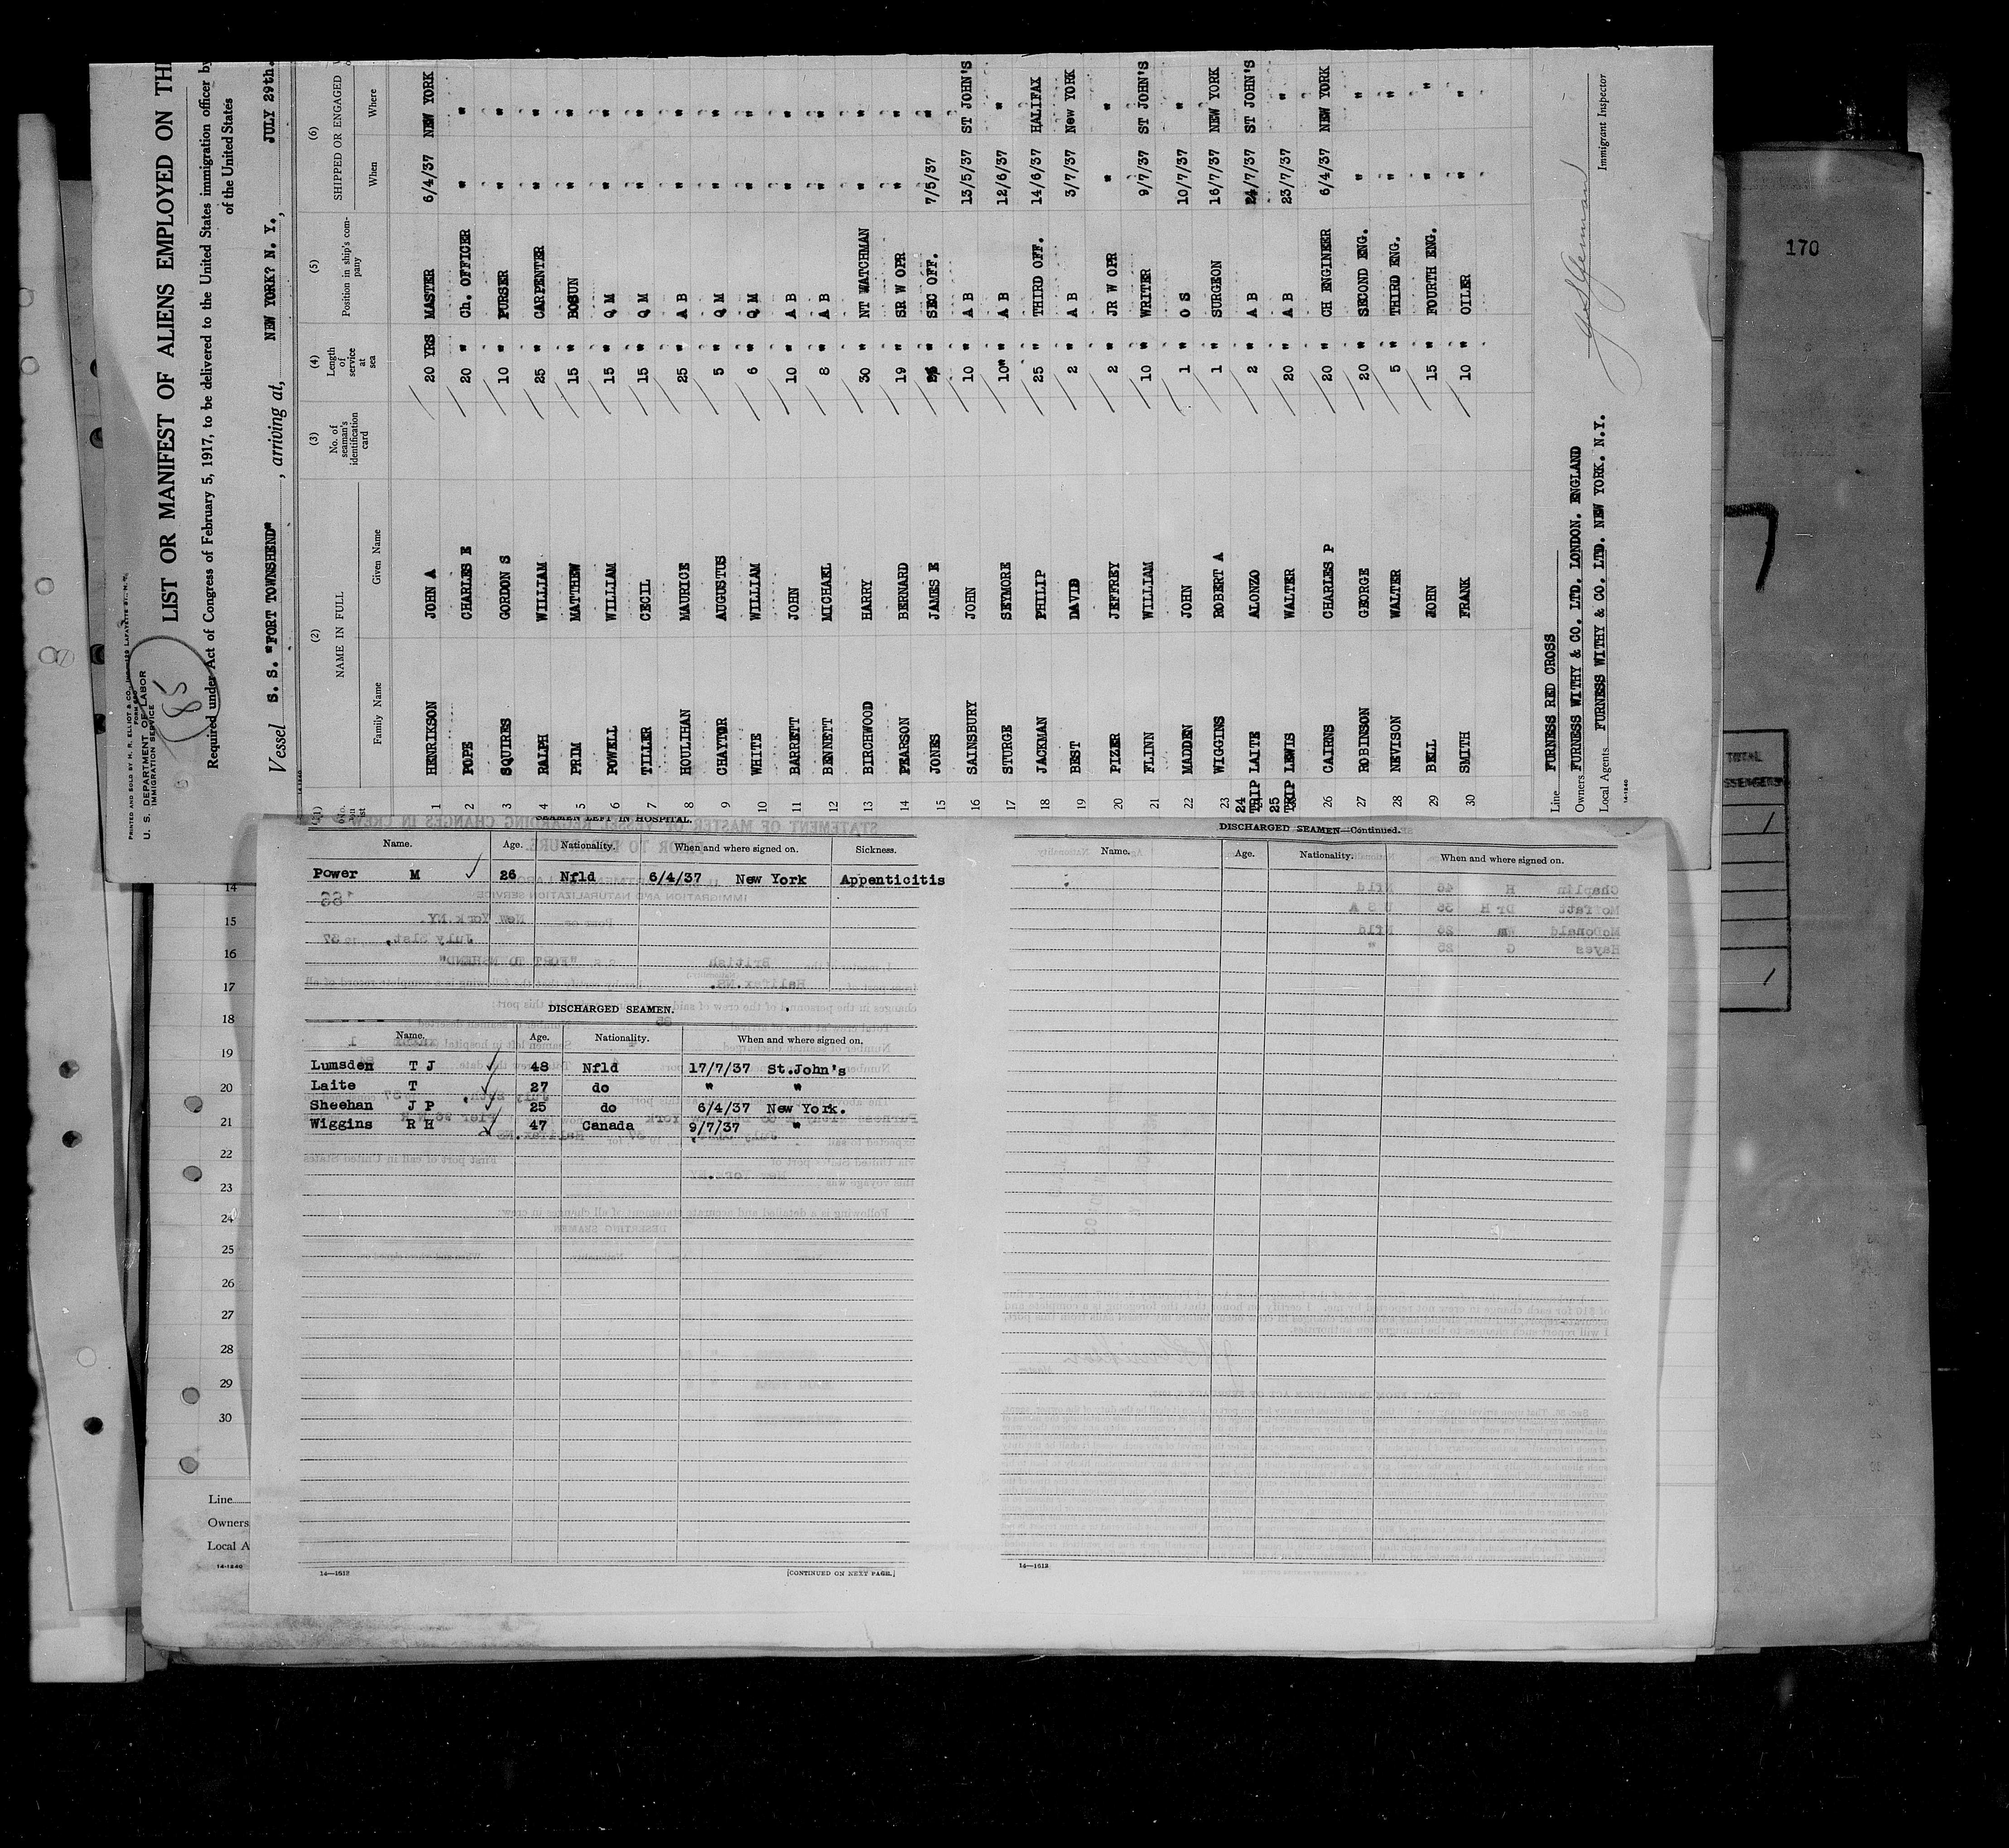 PRINTED AND SOLD BY M. R. ELLIOT & CO.
U. S. DEPARTMENT OF LABOR
IMMIGRATION SERVICE
85
LIST OR MANIFEST OF ALIENS EMPLOYED ON TH
Required under Act of Congress of February 5, 1917, to be delivered to the United States immigration officer by
of the United States
Vessel S. S. "FORT TOWNSHEND" , arriving at, NEW YORK? N. Y. , JULY 29th.
(2) (3) (4) (5) (6)
NAME IN FULL No. of seaman's identification card Length of service at sea Position in ship's company SHIPPED OR ENGAGED
Family Name Given Name When Where
1 HENRIKSON JOHN A 20 YRS MASTER 6/4/37 NEW YORK
2 POPE CHARLES E 20 " Ch. OFFICER " "
3 SQUIRES GORDON S 10 " PURSER " "
4 RALPH WILLIAM 25 " CARPENTER " "
5 PRIM MATTHEW 15 " BOSUN " "
6 POWELL WILLIAM 15 " Q M " "
7 TILLER CECIL 15 " Q M " "
8 HOULIHAN MAURICE 25 " A B " "
9 CHAYTOR AUGUSTUS 5 " Q M " "
10 WHITE WILLIAM 6 " Q M " "
11 BARRETT JOHN 10 " A B " "
12 BENNETT MICHAEL 8 " A B " "
13 BIRCHWOOD HARRY 30 " NT WATCHMAN " "
14 PEARSON BERNARD 19 " SR W OPR " "
15 JONES JAMES E " SEC OFF. 7/5/37 "
16 SAINSBURY JOHN 10 " A B 13/5/37 ST JOHN'S
17 STURGE SEYMORE 10 " A B 12/6/37 "
18 JACKMAN PHILIP 25 " THIRD OFF. 14/6/37 HALIFAX
19 BEST DAVID 2 " A B 3/7/37 New YORK
20 PIZER JEFFREY 2 " JR W OPR " "
21 FLINN WILLIAM 10 " WRITER 9/7/37 ST JOHN'S
22 MADDEN JOHN 1 " O S 10/7/37 "
23 WIGGINS ROBERT A 1 " SURGEON 16/7/37 NEW YORK
24 TRIP LAITE ALONZO 2 " A B 24/7/37 ST JOHN'S
25 TRIP LEWIS WALTER 20 " A B 23/7/37 "
26 CAIRNS CHARLES P 20 " CH ENGINEER 6/4/37 NEW YORK
27 ROBINSON GEORGE 20 " SECOND ENG. " "
28 NEVISON WALTER 5 " THIRD ENG. " "
29 BELL JOHN 15 " FOURTH ENG. " "
30 SMITH FRANK 10 " OILER " "
Line FURNESS RED CROSS
Owners FURNESS WITHY & CO. LTD. LONDON. ENGLAND
Local Agents FURNESS WITHY & CO. LTD. NEW YORK. N.Y.
Immigrant Inspector
14-1240
170
TOTAL
1
1
SEAMEN LEFT IN HOSPITAL.
Name. Age. Nationality. When and where signed on. Sickness.
Power M 26 Nfld 6/4/37 New York Appenticitis
DISCHARGED SEAMEN.
Name. Age. Nationality. When and where signed on.
Lumsden T J 48 Nfld 17/7/37 St.John's
Laite T 27 do " "
Sheehan J P 25 do 6/4/37 New York.
Wiggins R H 47 Canada 9/7/37 "
14—1613 [CONTINUED ON NEXT PAGE.]
DISCHARGED SEAMEN—Continued.
Name. Age. Nationality. When and where signed on.
14—1613
14
15
16
17
18
19
20
21
22
23
24
25
26
27
28
29
30
Line
Owners
Local A
14-1240